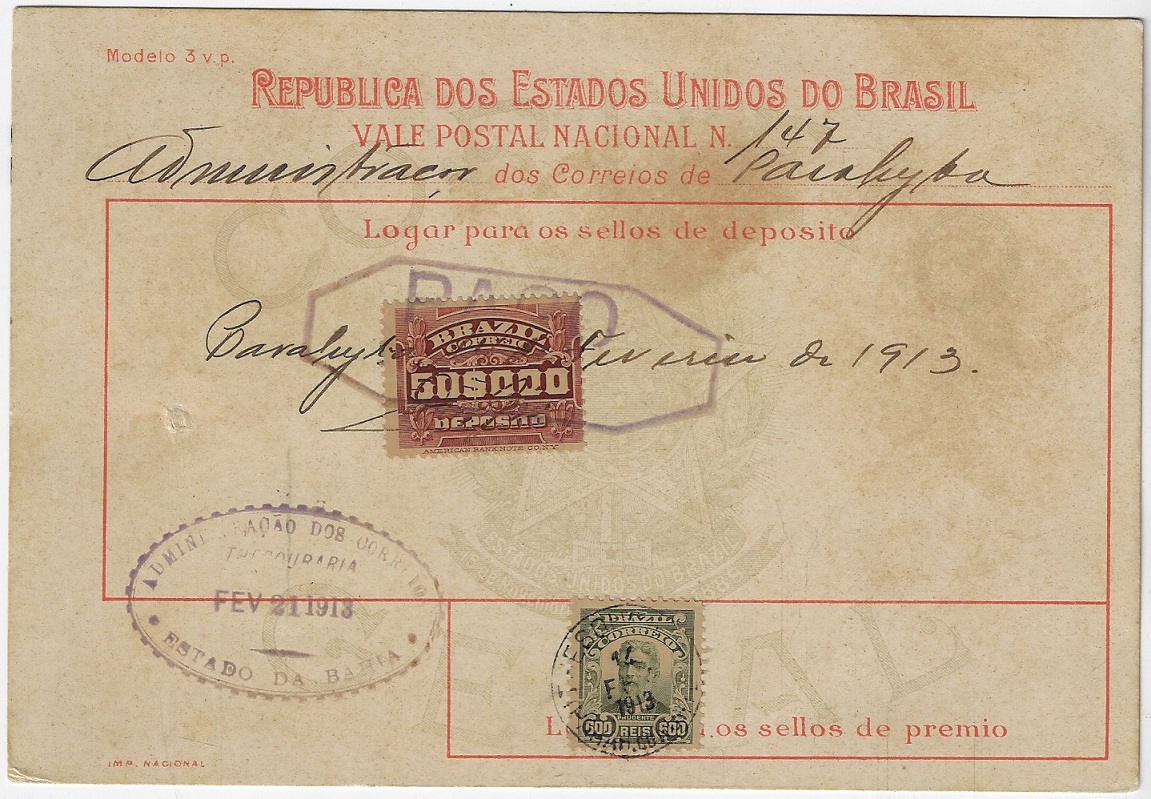 Modelo 3 v.p.
REPUBLICA DOS ESTADOS UNIDOS DO BRASIL
VALE POSTAL NACIONAL N. 147
Administração dos Correios de Parahyba
Logar para os sellos de deposito
PAGO
BRAZIL
CORREIO
Parahyba Fevereiro de 1913.
50$000
DEPOSITO
AMERICAN BANK NOTE CO. N.Y.
ESTADOS UNIDOS DO BRAZIL
ADMINISTRAÇÃO DOS CORREIOS
THESOURARIA
FEV 21 1913
ESTADO DA BAHIA
BRAZIL
CORREIO
14
1913
PRUDENTE
600 REIS 600
os sellos de premio
IMP. NACIONAL